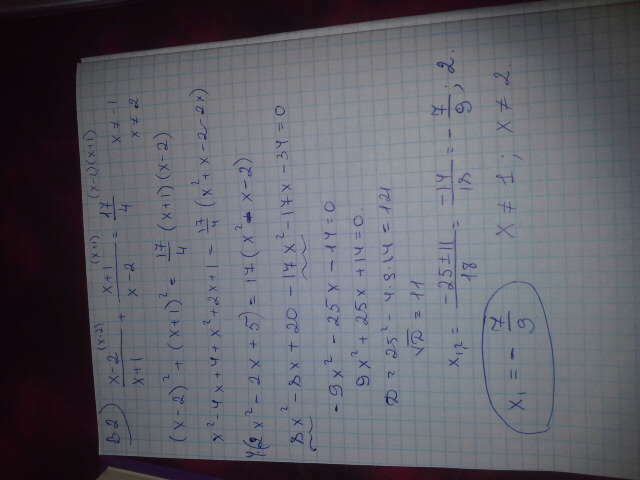 B2) (x-2)/(x+1) ^(x-2) + (x+1)/(x-2) ^(x+1) = 17/4 ^(x-2)(x+1) x ≠ -1 x ≠ 2
(x-2)² + (x+1)² = 17/4 (x+1)(x-2)
x² - 4x + 4 + x² + 2x + 1 = 17/4 (x² + x - 2 - 2x)
4(2x² - 2x + 5) = 17(x² - x - 2)
8x² - 8x + 20 - 17x² - 17x - 34 = 0
-9x² - 25x - 14 = 0
9x² + 25x + 14 = 0.
D = 25² - 4·9·14 = 121
√D = 11
x₁,₂ = (-25 ± 11)/18 = -14/18 = -7/9 ; 2.
x ≠ 1; x ≠ 2
x₁ = -7/9